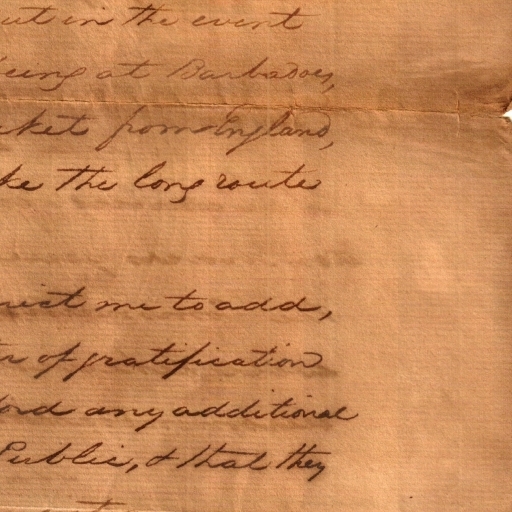 ut in the event
eing at Barbadoes,
cket from England,
ke the long route
mit me to add,
er of gratification
ford any additional
Public, & that they